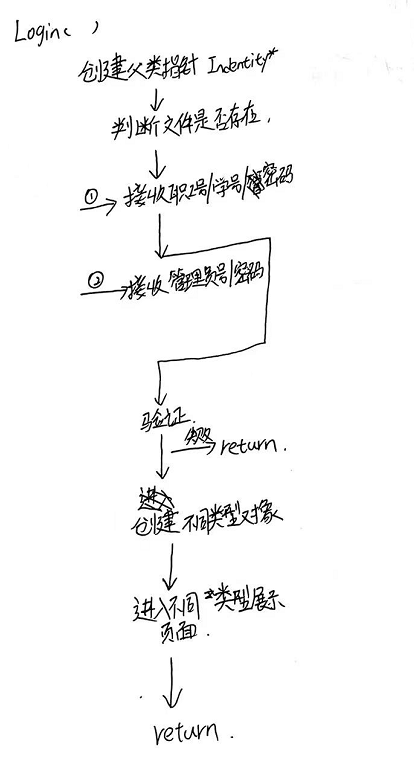 Login( )
创建父类指针 Indentity*
判断文件是否存在.
① 接收职工号/学号/密码
② 接收 管理员号/密码
验证.
失败 return.
进入
创建不同类型对象
进入不同类型展示
页面.
return.